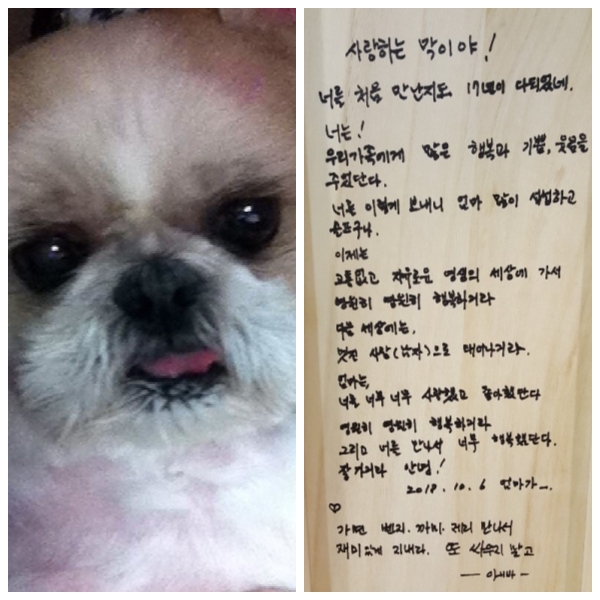 사랑하는 막이야!
너를 처음 만난지도 17년이 다되었네.
너는!
우리가족에게 많은 행복과 기쁨, 웃음을
주었단다.
너를 이렇게 보내니 엄마 많이 섭섭하고
슬프구나.
이제는
고통없고 자유로운 영생의 세상에 가서
영원히 영원히 행복하거라
다음 세상에는,
멋진 사람(남자)으로 태어나거라.
엄마는,
너를 너무 너무 사랑했고 좋아했단다
영원히 영원히 행복하거라
그리고 너를 만나서 너무 행복했단다.
잘가거라 안녕!
2018. 10. 6 엄마가....
♡
가면 벤지. 까미. 제리 만나서
재미있게 지내라. 또 싸우지 말고